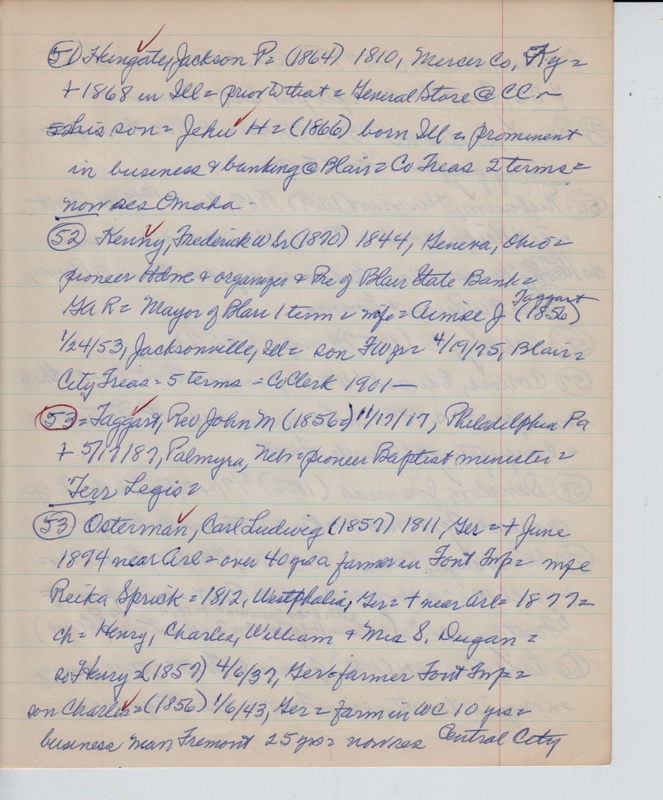 51) Hungate, Jackson P = (1864) 1810, Mercer Co, Ky =
+ 1868 in Ill = prior to that = General Store @ CC ~
his son = Jehu H = (1866) born Ill = prominent
in business & banking @ Blair = Co Treas 2 terms =
now res Omaha -
52 Kenny, Frederick W Sr (1870) 1844, Geneva, Ohio =
pioneer & organizer & Pre of Blair State Bank =
GAR = Mayor of Blair 1 term = wife = J Taggart (1856)
1/24/53, Jacksonville, Ill = son FW jr = 4/19/75, Blair =
City Treas = 5 terms = Co Clerk 1901 —
53 = Taggart, Rev John M (1856 = ) 11/17/17, Philadelphia Pa
+ 5/17/87, Palmyra, Neb = pioneer Baptist minister =
Terr Legis =
53 Osterman, Carl Ludwig (1857) 1811, Ger = + June
1894 near Arl = over 40 yrs a farmer in Font Twp = wife
Reika Sprick = 1812, Westphalia, Ger = + near Arl = 1877 =
ch = Henry, Charles, William & Mrs S. Dugan =
so Henry = (1857) 4/6/37, Ger = farmer Font Twp =
son Charles = (1856) 1/6/43, Ger = farm in WC 10 yrs =
business man Fremont 25 yrs = now res Central City